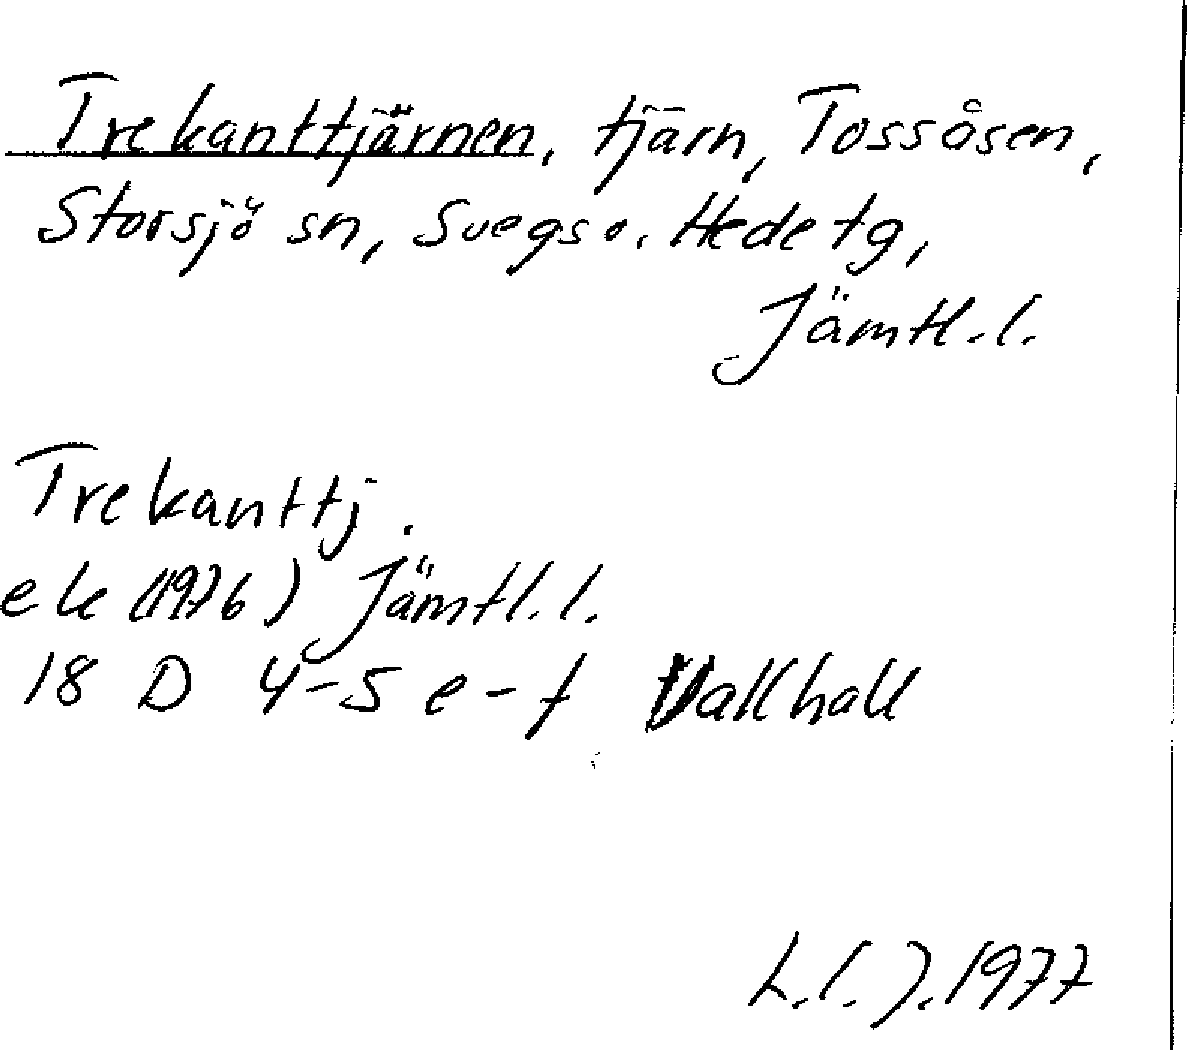 Trekanttjärnen, tjärn, Tossåsen,
Storsjö sn, Svegs o. Hede tg,
Jämtl.l.
Trekanttj.
ek (1976) Jämtl.l.
18 D 4-5 e-f Vallhall
L.l.J.1977